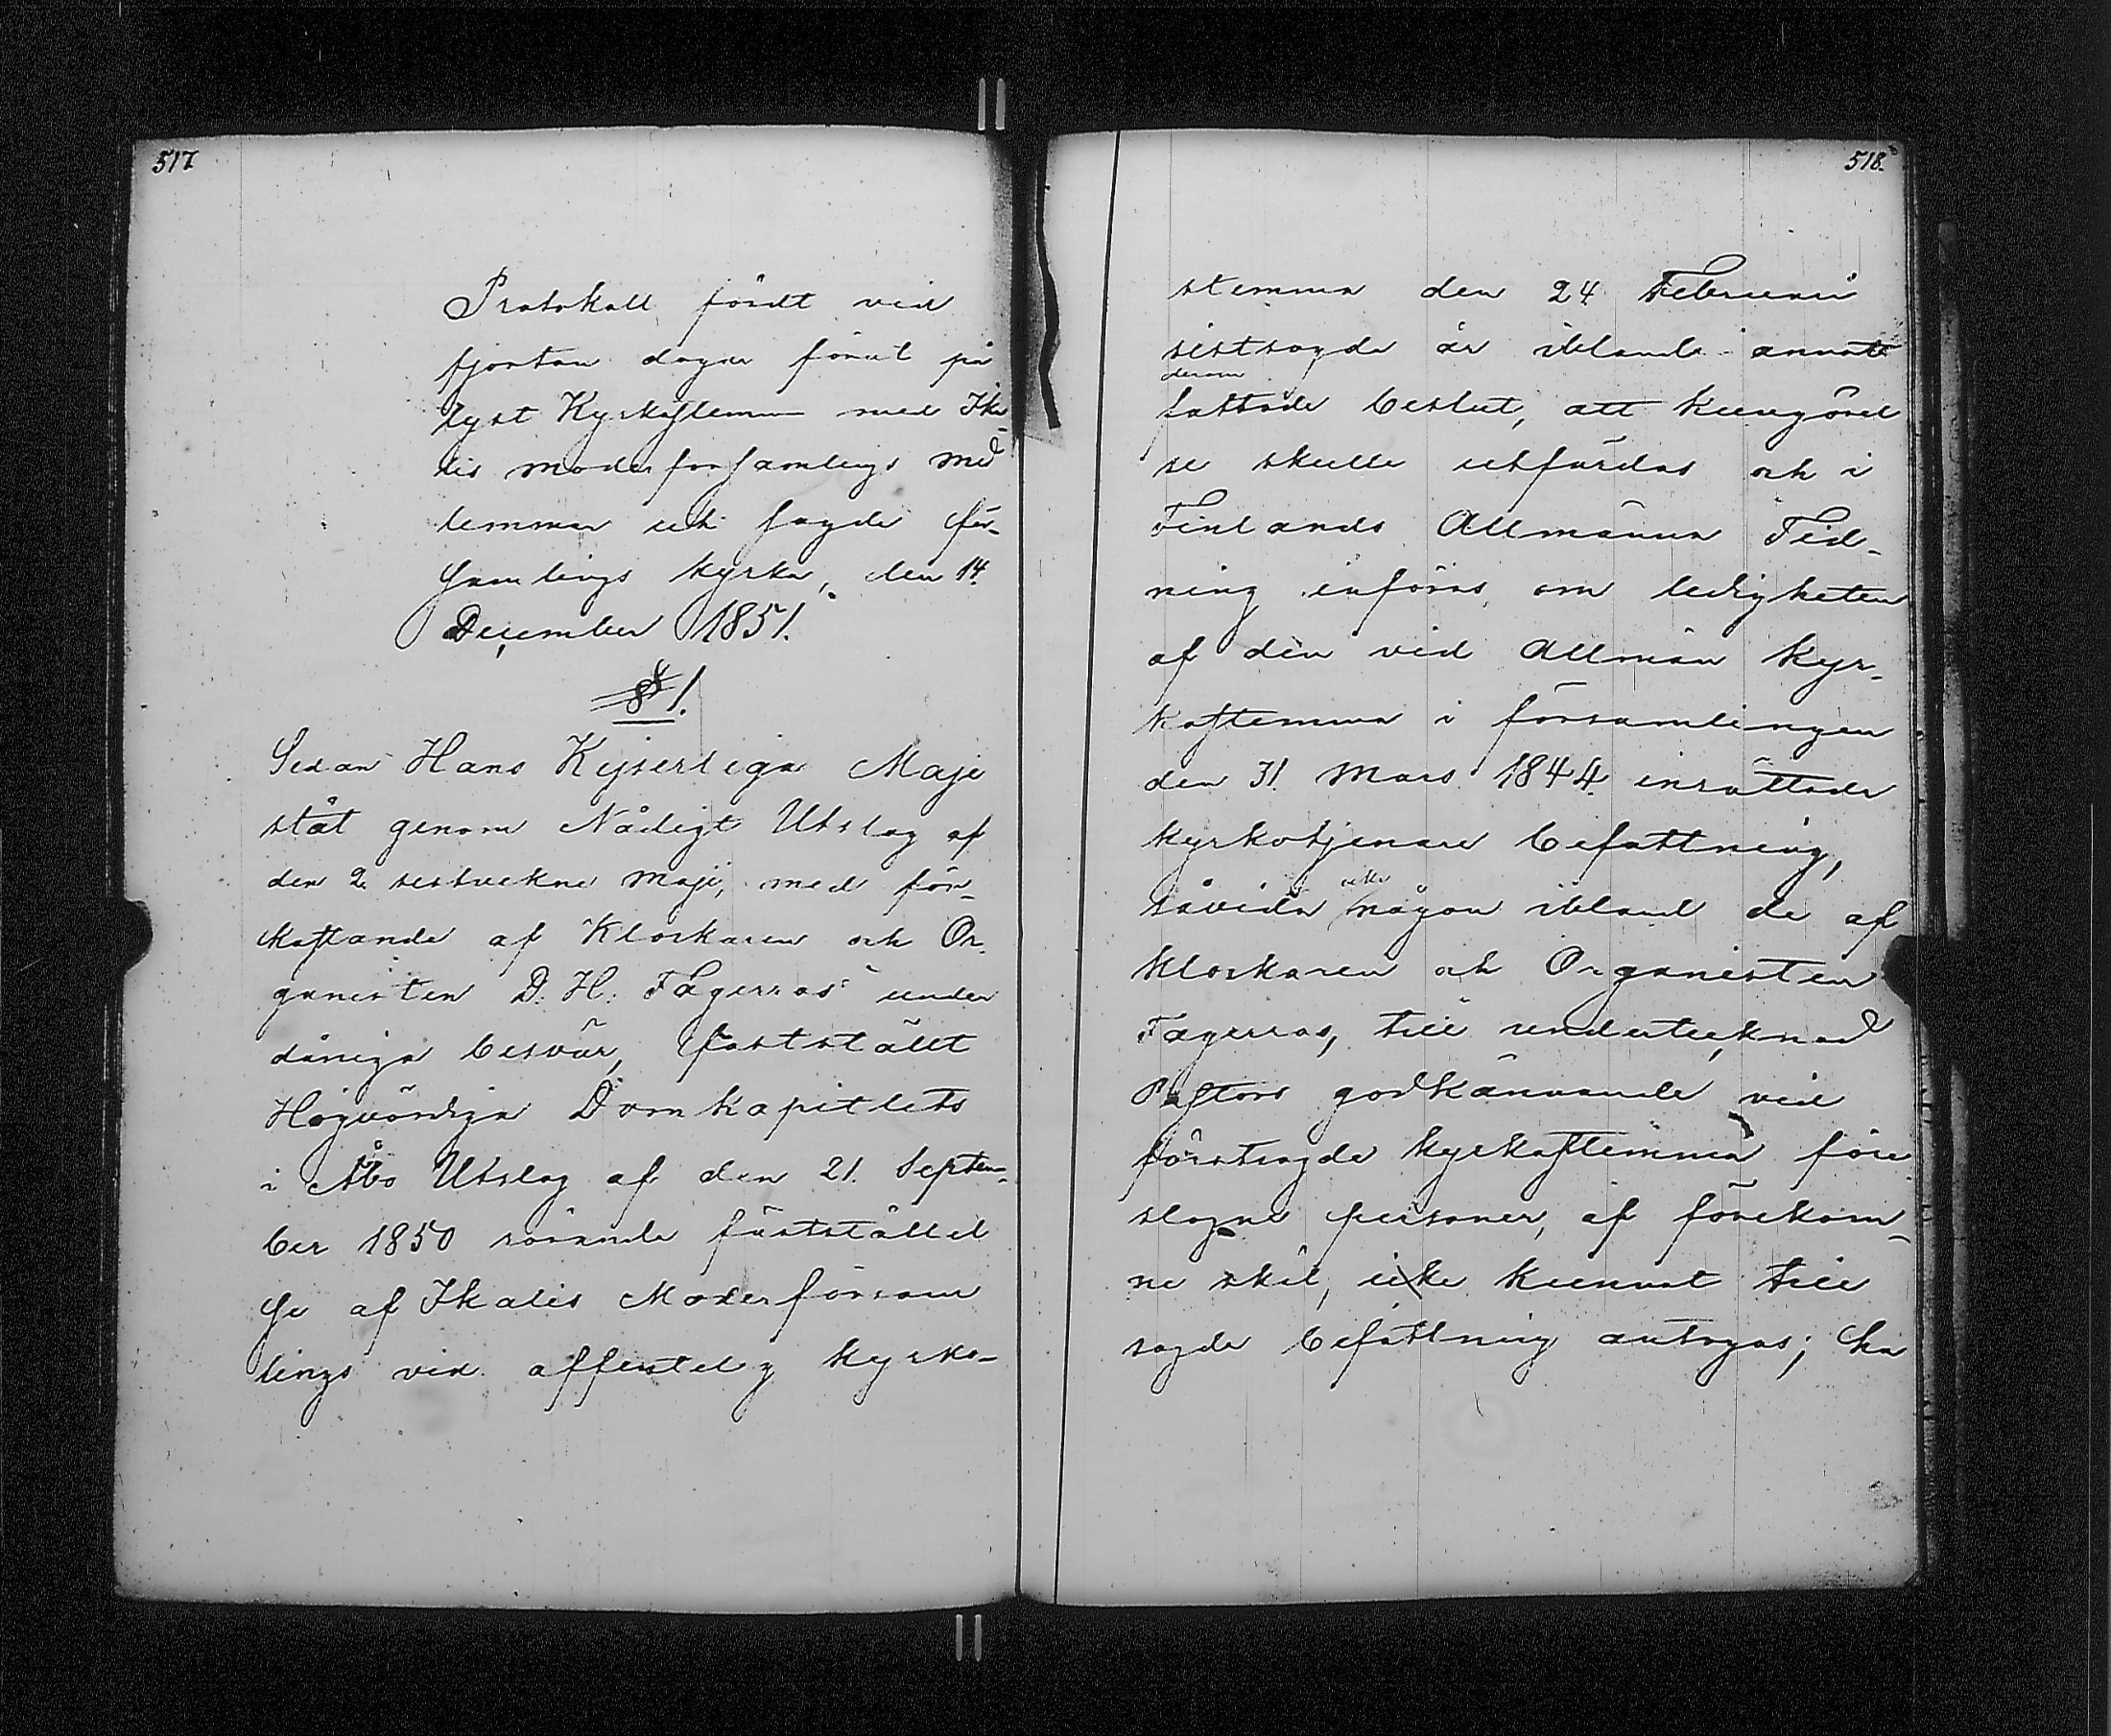 517
Protokoll fördt vid
fjorton dagar förut på
lyst Kyrkostemma med Ika
lis moderforsamlings med
lemmar uti sagde för-
samlings kyrka, den 14.
December 1851.
§ 1.
Sedan Hans Kejserliga Maje
stät genom Nådigt Utslag af
den 2 sistvekne Maji, med för-
kastande af Klockaren och Or-
ganisten D. H. Fagerros under
dåniga besvär, fastställt
Högvördiga Domkapitlets
i Åbo Utslag af den 21. Septem-
ber 1850 rörande fastställel
se af Ikalis Moderförsam
lings vid offentelig Kyrko-
518.
stemma den 24 Februarii
sistsagde år ibland annat
derom
fattade beslut, att kungörel
se skulle utfärdas och i
Finlands Allmänna Tid-
ning införas om ledigheten
af den vid Allmän Kyr-
kostemma i församlingen
den 31 Mars 1844 inrättade
kyrkotjenare befattning,
såvida någon ibland de af
klockaren och Organisten
Fagerros, till undertecknad
Pastors godkännande vid
förstsagde kyrkostemma före
slagne personer, af förekom-
ne skäl, icke kunnat till
sagde befattning antagas; ha